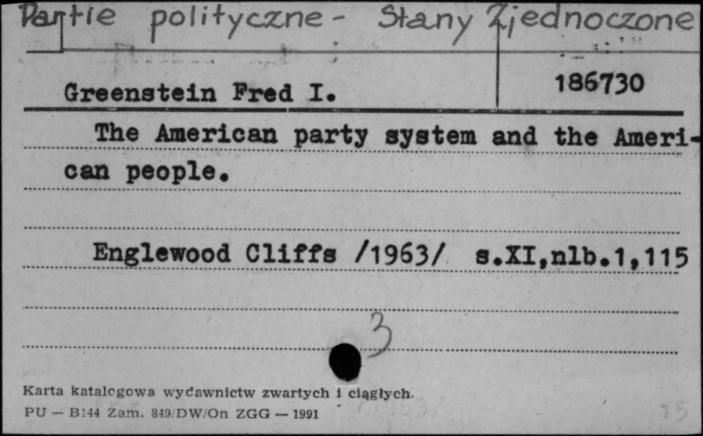 Partie polityczne - Stany Zjednoczone
Greenstein Fred I.
186730
The American party system and the Ameri-
can people.
Englewood Cliffs /1963/ s.XI,nlb.1,115
3
Karta katalogowa wydawnictw zwartych i ciągłych.
PU — B144 Zam. 849/DW/On ZGG — 1991
15